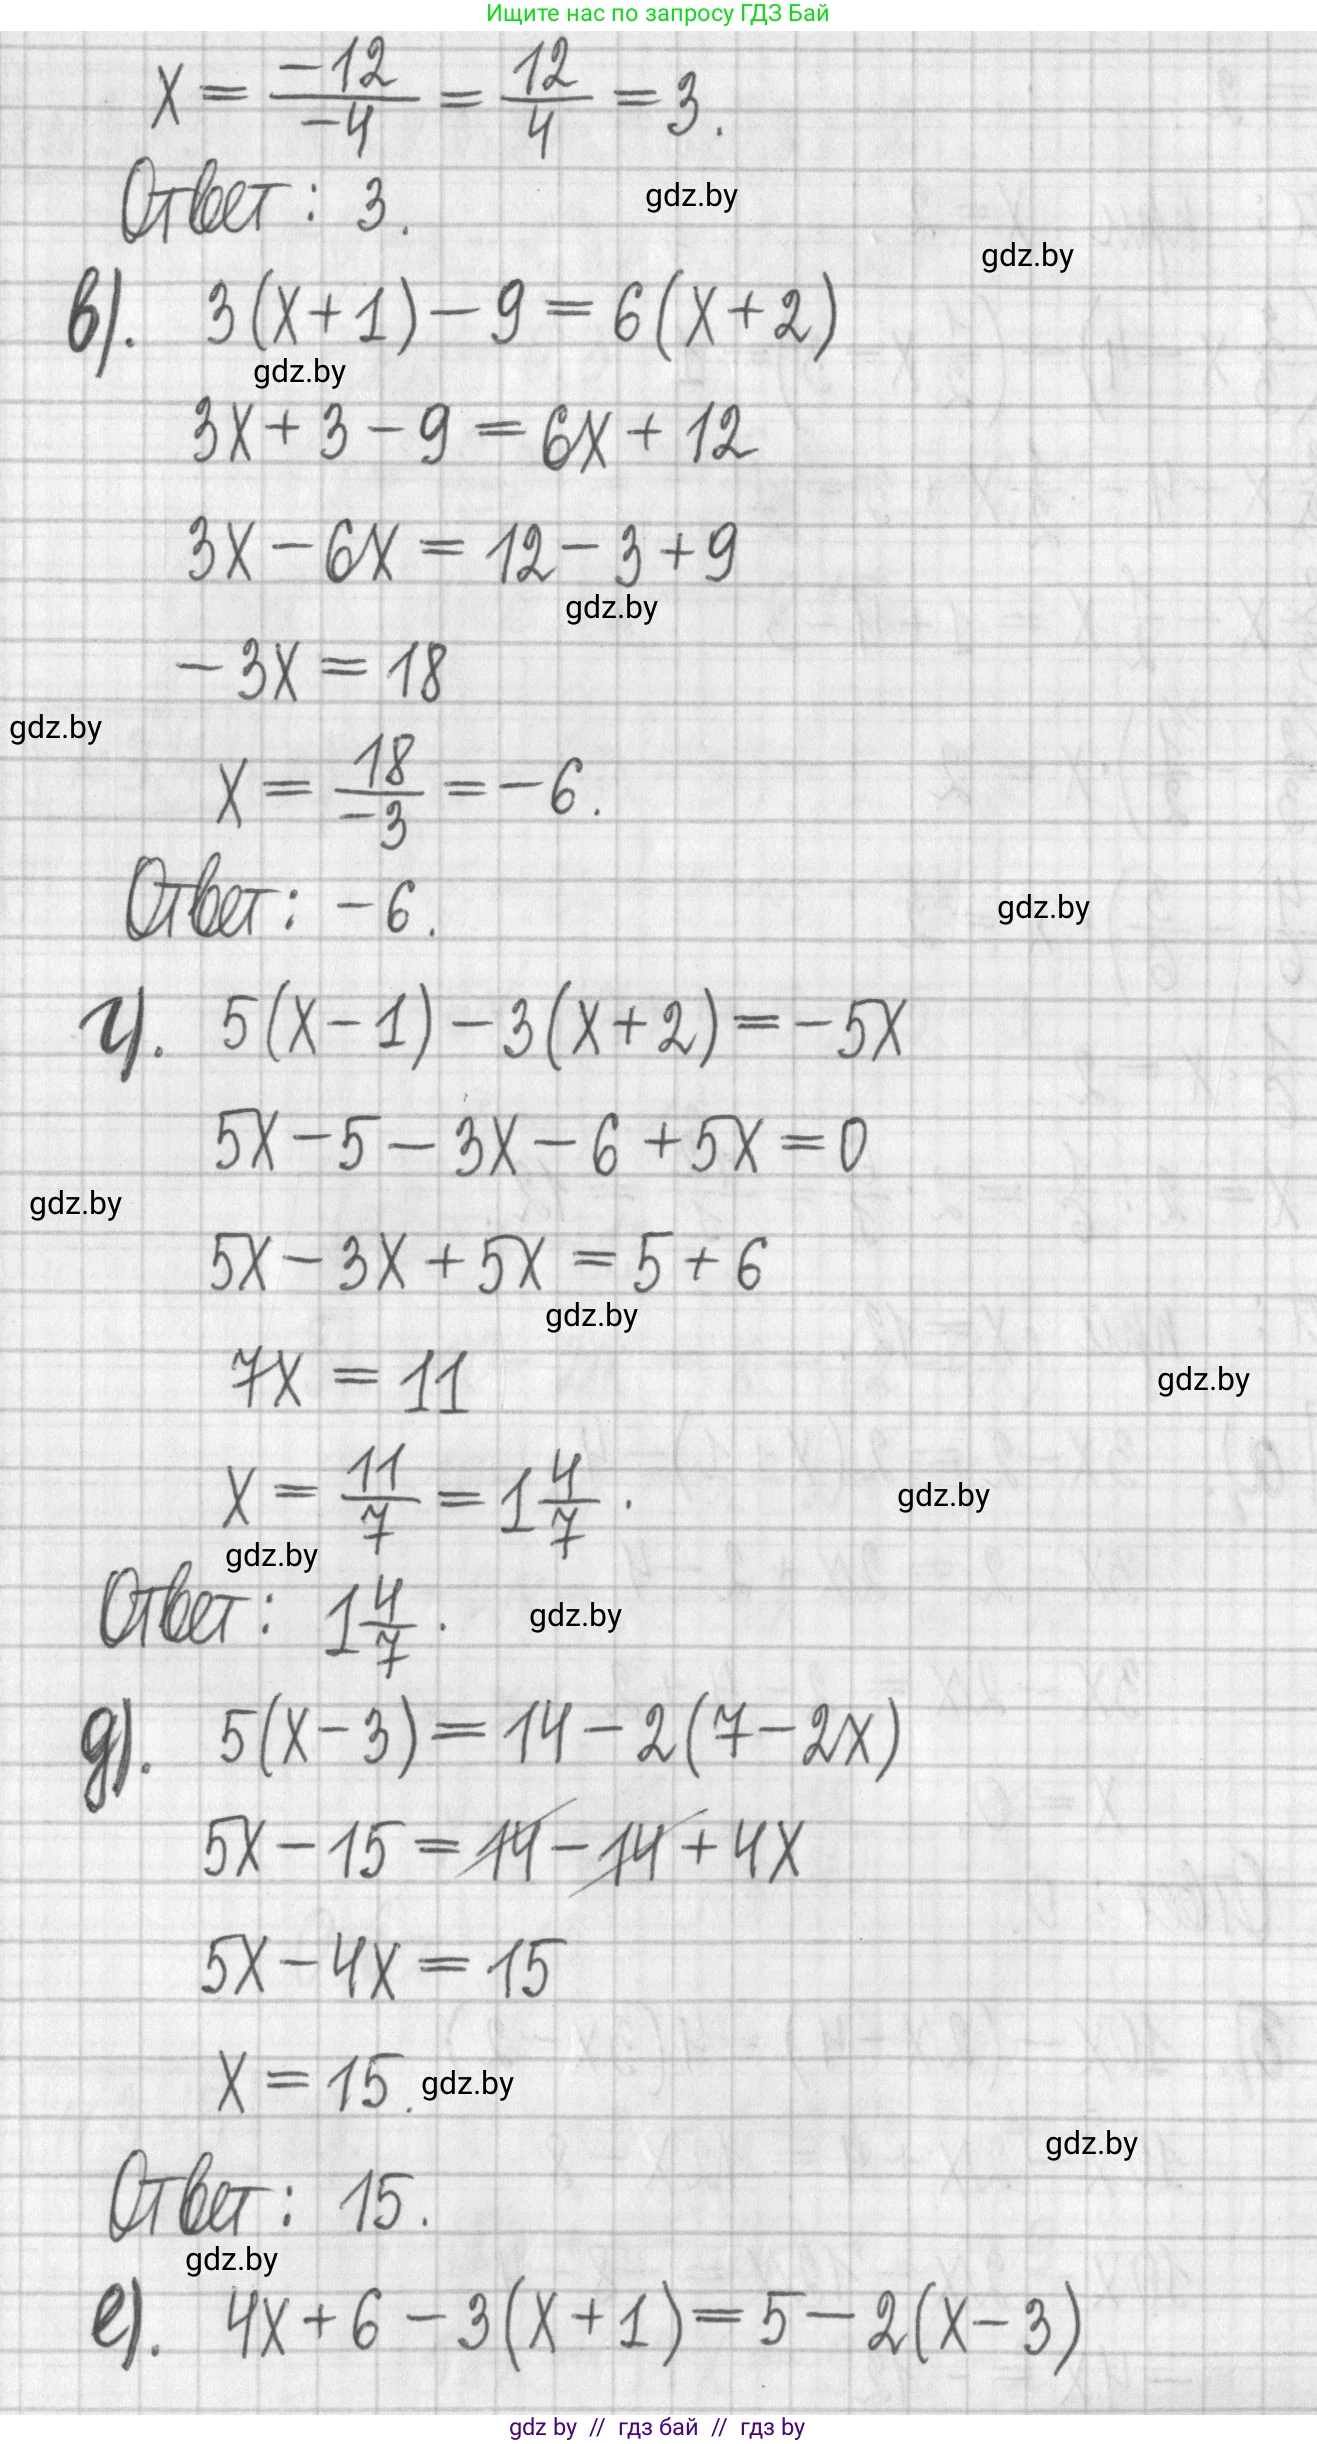 Ищите нас по запросу ГДЗ Бай
x = -12/-4 = 12/4 = 3.
Ответ: 3.
gdz.by
gdz.by
в). 3(x+1) - 9 = 6(x+2)
gdz.by
3x + 3 - 9 = 6x + 12
3x - 6x = 12 - 3 + 9
gdz.by
-3x = 18
gdz.by
x = 18/-3 = -6.
Ответ: -6.
gdz.by
г). 5(x-1) - 3(x+2) = -5x
5x - 5 - 3x - 6 + 5x = 0
gdz.by
5x - 3x + 5x = 5 + 6
gdz.by
7x = 11
gdz.by
x = 11/7 = 1 4/7.
gdz.by
gdz.by
Ответ: 1 4/7.
gdz.by
д). 5(x-3) = 14 - 2(7-2x)
5x - 15 = 14 - 14 + 4x
5x - 4x = 15
x = 15.
gdz.by
gdz.by
Ответ: 15.
gdz.by
е). 4x + 6 - 3(x+1) = 5 - 2(x-3)
gdz by // гдз бай // гдз by